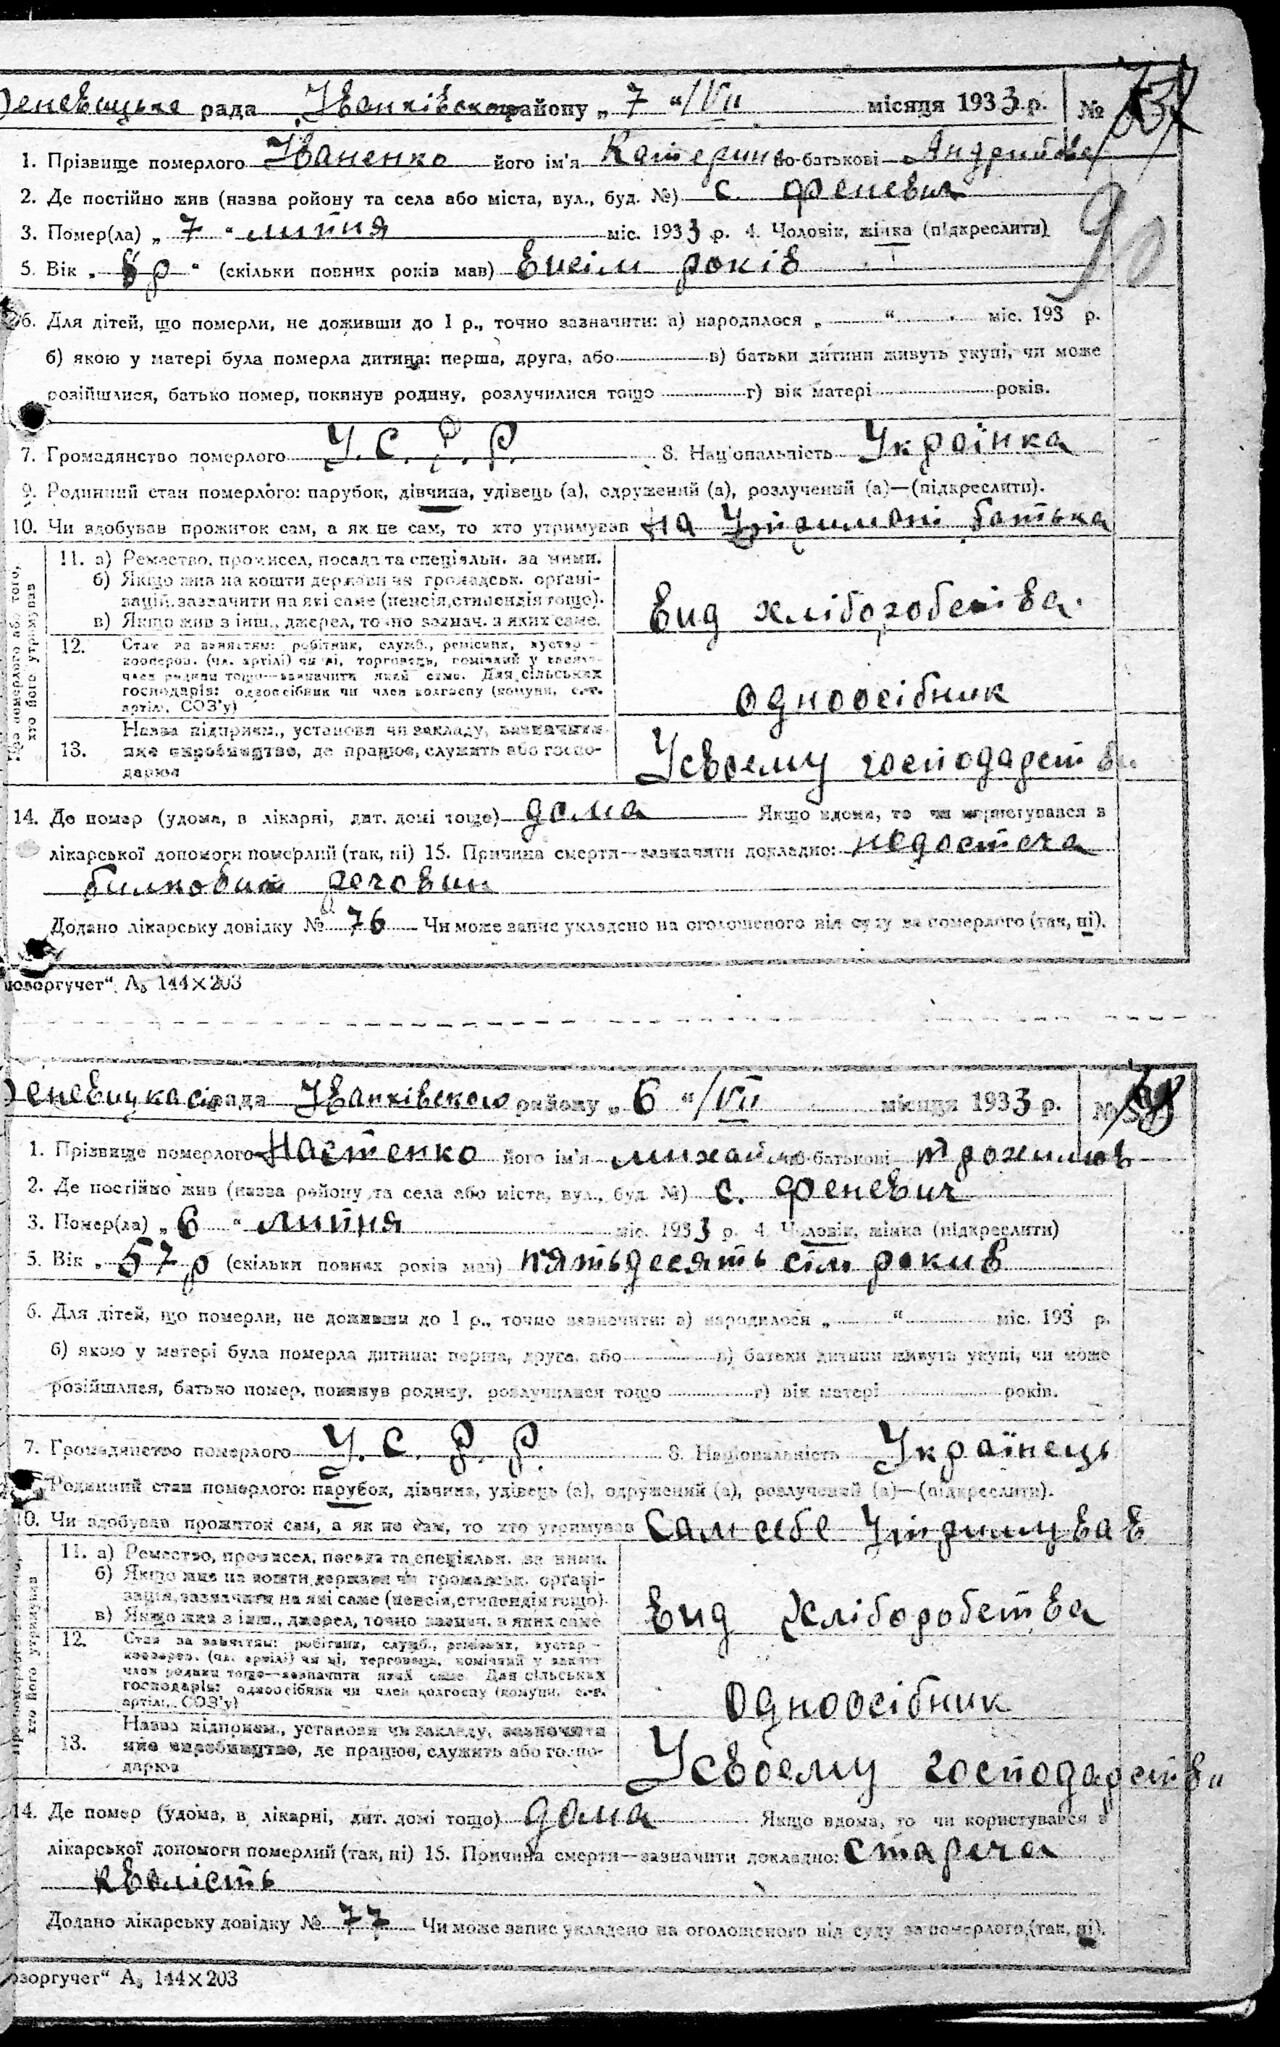 Феневицьке рада Іванківського району „ 7 “ /VII місяця 1933 р. №
1. Прізвище померлого Іваненко його ім'я Катерина по-батькові Андрийова
2. Де постійно жив (назва ройону та села або міста, вул., буд. №) с. Феневич
3. Помер(ла) „ 7 “ липня міс. 1933 р. 4. Чоловік, жінка (підкреслити)
90
5. Вік „ 8 р “ (скільки повних років мав) Висім років
6. Для дітей, що померли, не доживши до 1 р., точно зазначити: а) народилося „ “ міс. 193 р.
б) якою у матері була померла дитина: перша, друга, або в) батьки дитини живуть укупі, чи може
розійшлися, батько помер, покинув родину, розлучилися тощо г) вік матері років.
7. Громадянство померлого У. С. Р. Р. 8. Національність Украінка
9. Родинний стан померлого: парубок, дівчина, удівець (а), одружений (а), розлучений (а)—(підкреслити).
10. Чи здобував прожиток сам, а як не сам, то хто утримував На Утримані батька
Про померлого або того,
хто його утримував
11. а) Ремество, промисел, посада та спеціяльн. за ними.
б) Якщо жив на кошти держави чи громадськ. органі-
зацій, зазначити на які саме (пенсія, стипендія тощо).
в) Якщо жив з інш., джерел, точно зазнач. з яких саме.
Вид хліборобства.
12. Стан за заняттям: робітник, служб., ремісник, кустар—
кооперов. (чл. артілі) чи ні, торговець, помічний у занят.
член родини тощо—зазначити який саме. Для сільських
господарів: одноосібник чи член колгоспу (комуни, с.-г.
артілі, СОЗ'у)
одноосібник
13. Назва підприєм., установи чи закладу, зазначити
яке виробництво, де працює, служить або госпо-
дарює
Усвоему господарстви
14. Де помер (удома, в лікарні, дит. домі тощо) дома Якщо вдома, то чи користувався з
лікарської допомоги померлий (так, ні) 15. Причина смерти—зазначити докладно: недостача
билкових речовин
Додано лікарську довідку № 76 Чи може запис укладено на оголошеного від суду за померлого (так, ні).
юзоргучет“ А5 144×203
Феневицкасі рада Іванківского району „ 6 “ /VII місяця 1933 р. №
1. Прізвище померлого Настенко його ім'я Михайло по-батькові Трохимов
2. Де постійно жив (назва району та села або міста, вул., буд. №) с. Феневич
3. Помер(ла) „ 6 “ липня міс. 1933 р. 4. Чоловік, жінка (підкреслити)
5. Вік „ 57 р (скільки повних років мав) пятьдесять сім рокив
6. Для дітей, що померли, не доживши до 1 р., точно зазначити: а) народилося „ “ міс. 193 р.
б) якою у матері була померла дитина: перша, друга, або в) батьки дитини живуть укупі, чи може
розійшлися, батько помер, покинув родину, розлучилися тощо г) вік матері років.
7. Громадянство померлого У. С. Р. Р. 8. Національність Українець
Родинний стан померлого: парубок, дівчина, удівець (а), одружений (а), розлучений (а)—(підкреслити).
10. Чи здобував прожиток сам, а як не сам, то хто утримував Сам себе Утримував
хто його утримував
11. а) Ремество, промисел, посада та спеціяльн. за ними.
б) Якщо жив на кошти держави чи громадськ. органі-
зацій, зазначити на які саме (пенсія, стипендія тощо).
в) Якщо жив з інш., джерел, точно зазнач. з яких саме
Вид Хліборобства
12. Стан за заняттям: робітник, служб., ремісник, кустар—
кооперов. (чл. артілі) чи ні, торговець, помічний у занят.
член родини тощо—зазначити який саме. Для сільських
господарів: одноосібник чи член колгоспу (комуни, с.-г.
артілі, СОЗ'у)
одноосібник
13. Назва підприєм., установи чи закладу, зазначити
яке виробництво, де працює, служить або госпо-
дарює
Усвоему господарстви
14. Де помер (удома, в лікарні, дит. домі тощо) дома Якщо вдома, то чи користувався з
лікарської допомоги померлий (так, ні) 15. Причина смерти—зазначити докладно: Стареча
квалість
Додано лікарську довідку № 77 Чи може запис укладено на оголошеного від суду за померлого, (так, ні).
озоргучет“ А5 144×203